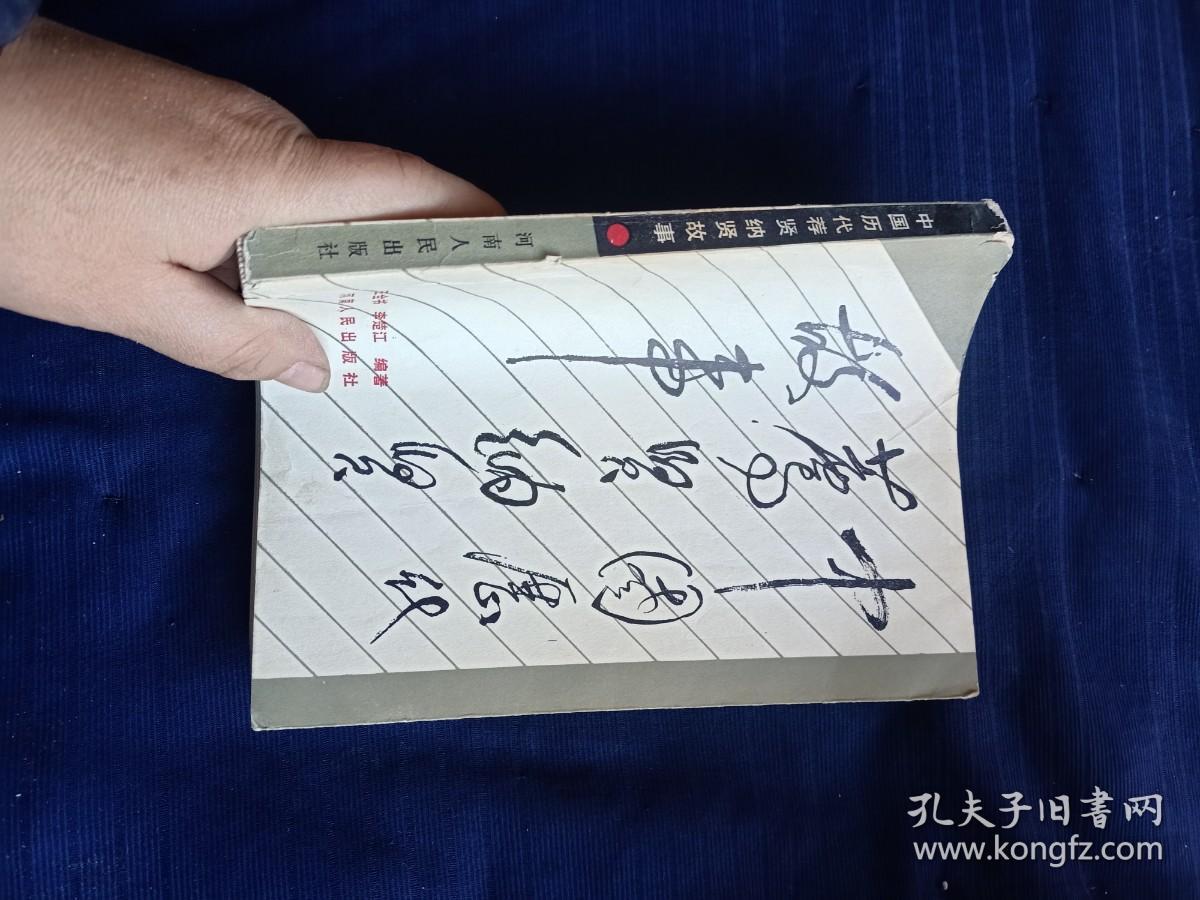 中国历代荐贤纳贤故事
河南人民出版社
中國歷代
薦賢納賢
故事
李楚江 编著
人民出版社
孔夫子旧書网
www.kongfz.com